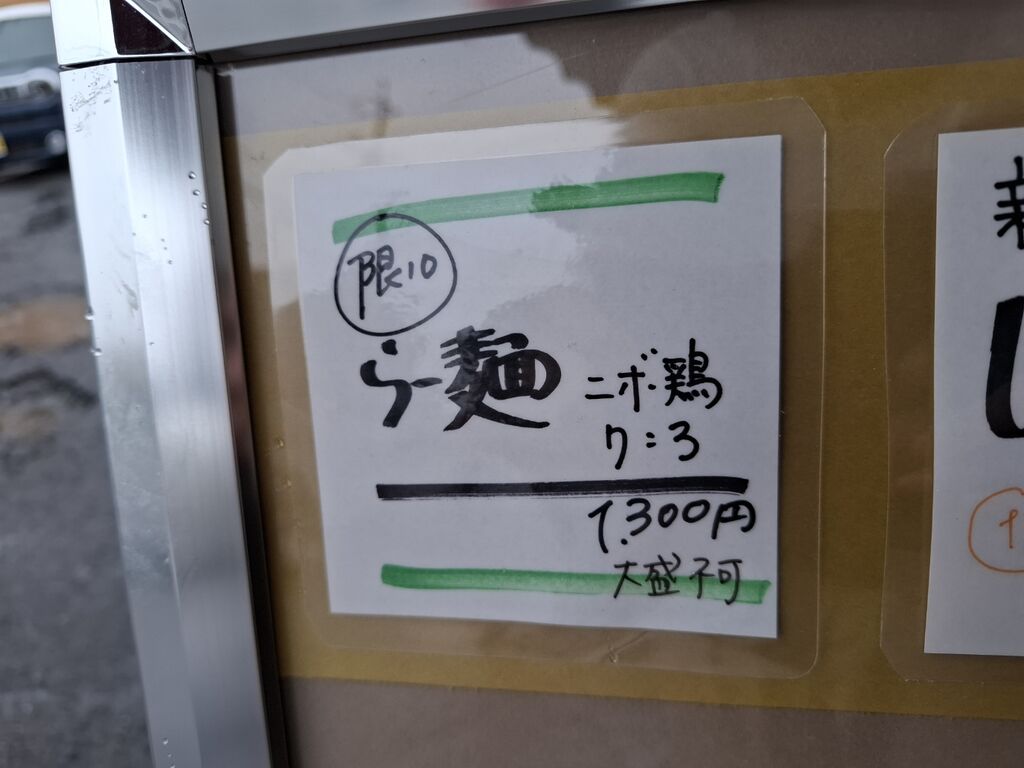 限10
らー麺
ニボ鶏
7:3
1,300円
大盛不可
新
し
1